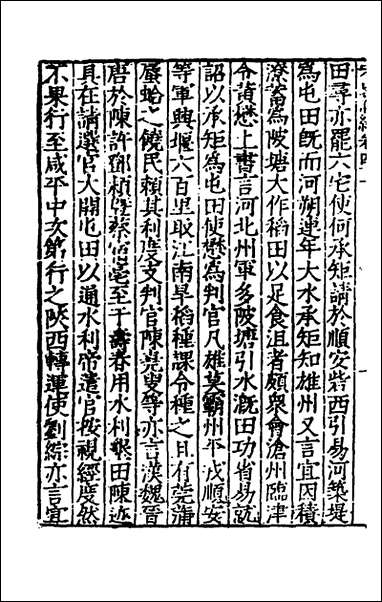 田尋亦罷六宅使何承矩請於順安砦西引易河築堤
為屯田既而河朔連年大水承矩知雄州又言宜因積
潦蓄為陂塘大作稻田以足食沮者頗衆會滄州臨津
令黃懋上書言河北州軍多陂塘引水溉田功省易就
詔以承矩為屯田使懋為判官凡雄莫霸州平戎順安
等軍興堰六百里取江南早稻種課令種之且有莞蒲
蜃蛤之饒民賴其利度支判官陳堯叟等亦言漢魏晉
唐於陳許鄧潁暨蔡宿亳至于壽春用水利墾田陳迹
具在請選官大開屯田以通水利帝遣官按視經度然
不果行至咸平中次第行之陝西轉運使劉綜亦言宜